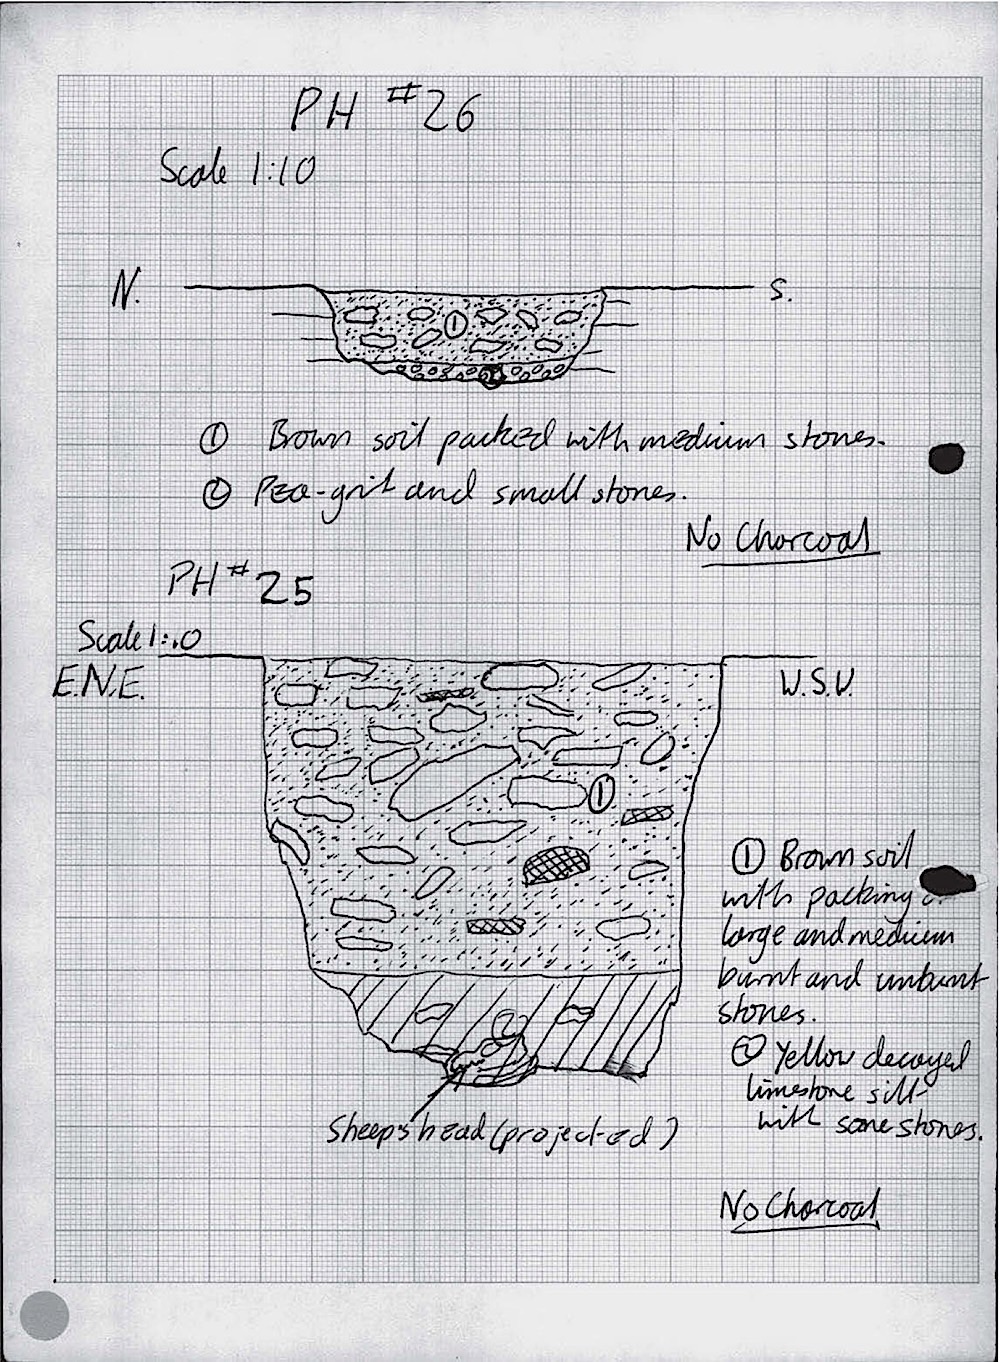 PH #26
Scale 1:10
N.
S.
1
2
① Brown soil packed with medium stones.
② Pea-grit and small stones.
No Charcoal
PH #25
Scale 1:10
E.N.E.
W.S.W.
1
2
① Brown soil
with packing
large and medium
burnt and unburnt
stones.
② Yellow decayed
limestone silt
with some stones.
Sheep's head (projected)
No Charcoal